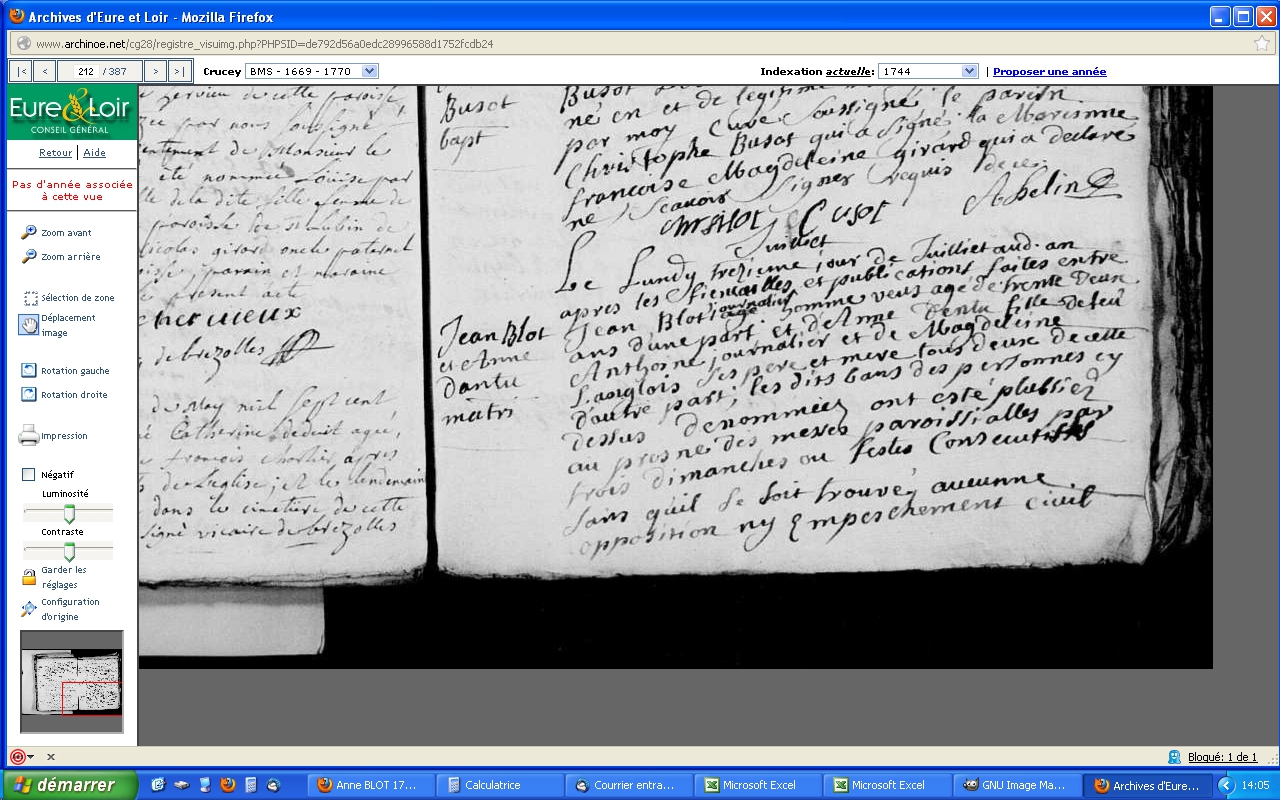 Archives d'Eure et Loir - Mozilla Firefox
www.archinoe.net/cg28/registre_visuimg.php?PHPSID=de792d56a0edc28996588d1752fcdb24
|< < 212 / 387 > >| Crucey BMS - 1669 - 1770 Indexation actuelle: 1744 | Proposer une année
Eure & Loir
CONSEIL GÉNÉRAL
Retour | Aide
Pas d'année associée
à cette vue
Zoom avant
Zoom arrière
Sélection de zone
Déplacement
image
Rotation gauche
Rotation droite
Impression
Négatif
Luminosité
Contraste
Garder les
réglages
Configuration
d'origine
de cette paroisse
par nous soussigné
de Monsieur le
été nommée Louise par
de la dite fille femme de
paroisse de St Lubin de
girard oncle paternel
parain et maraine
le present acte
de brezolles
de May mil sept cent
Catherine deduit agée
françois Chorlier apres
de L'eglise; Et le lendemain
dans le cimetiere de cette
signé vicaire de brezolles
Busot
bapt
Busot
né en et de legitime
par moy Curé soussigné le parein
Christophe Busot qui a signé la Mareinne
francoise Magdeleine girard qui a declaré
ne scavoir signer requis de ce.
C Busot Abelin
Juillet
Le Lundy trezieme jour de Juilliet aud. an
apres les fiencailles et publications faites entre
Jean Blot journalier homme veuf agé de trente deux
ans d'une part et d'Anne Dentu fille de feu
Anthoine journalier et de Magdeleine
Langlois ses pere et mere tous deux de cette
d'autre part; les dits bans des personnes cy
dessus denommeez ont esté plubliez
au prosne des messes paroissialles par
trois dimanches ou festes Consecutives
sans quil se soit trouvéz aucunne
opposition ny Empeschement civil
Jean Blot
et Anne
Dantu
matri
Bloqué: 1 de 1
démarrer
Anne BLOT 17...
Calculatrice
Courrier entra...
Microsoft Excel
Microsoft Excel
GNU Image Ma...
Archives d'Eure...
14:05